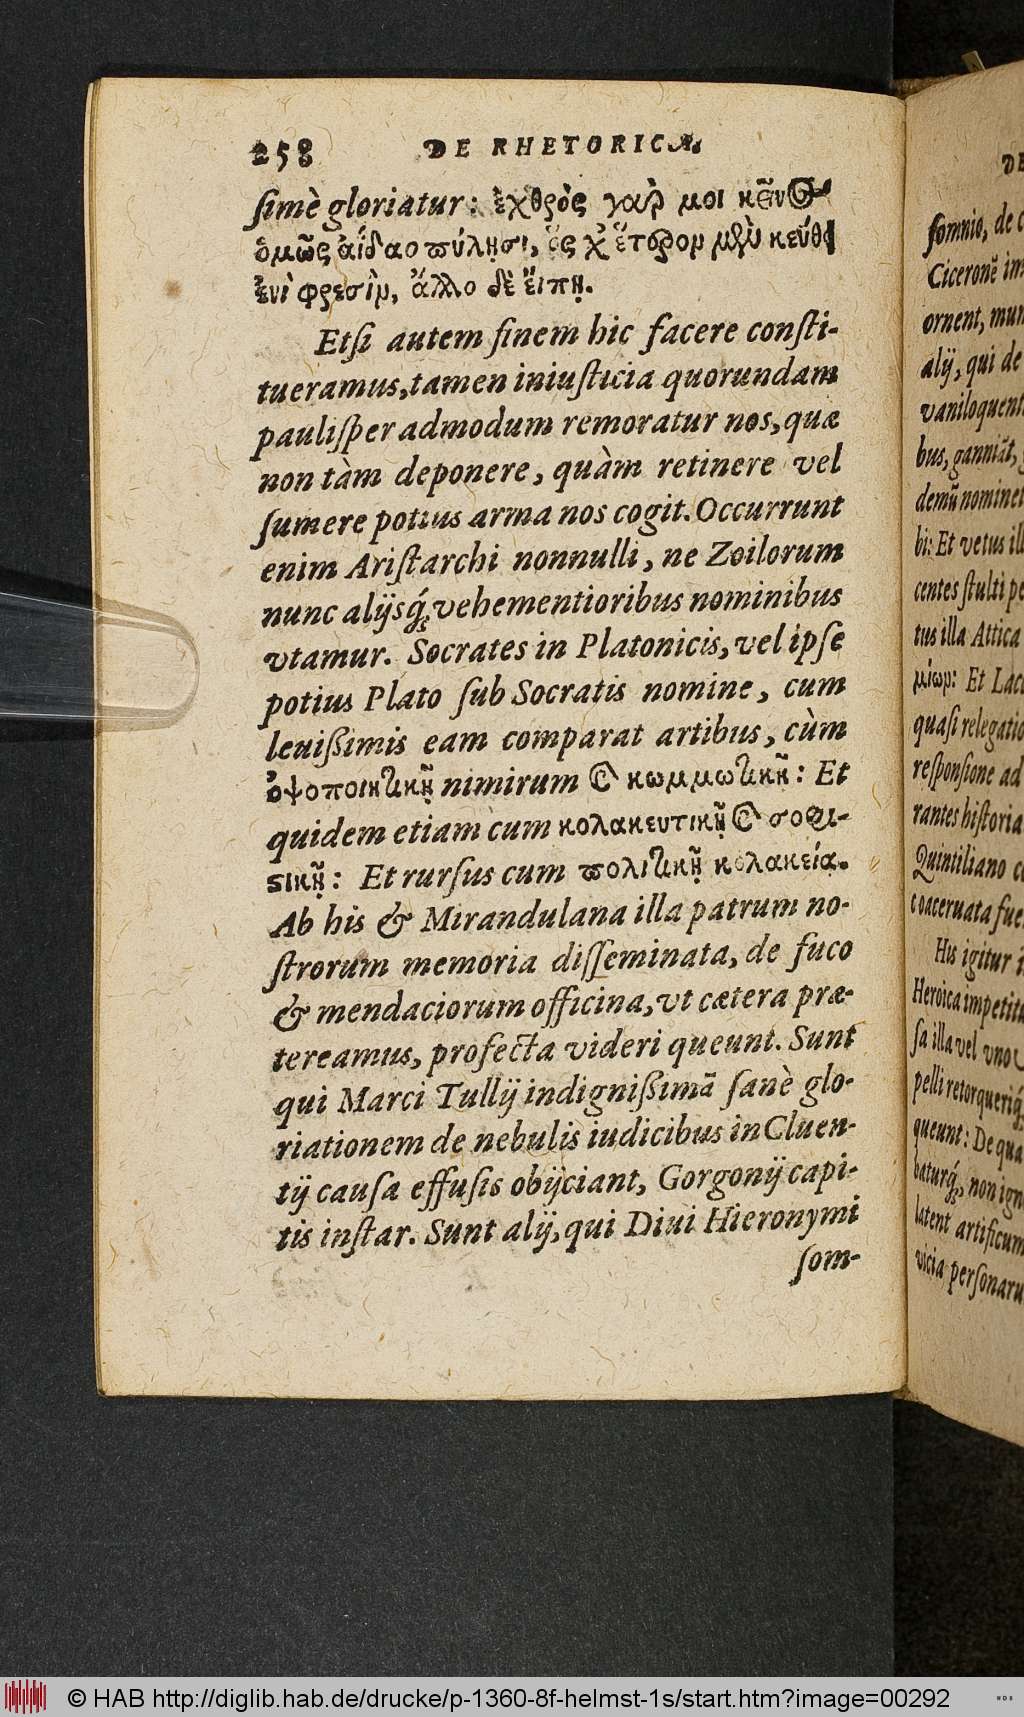 258 DE RHETORICA
ſimè gloriatur: ἐχθρὸς γάρ μοι κεῖνος
ὁμῶς ἀΐδαο πύλῃσι, ὅς χ' ἕτερον μὲν κεύθει
ἐνὶ φρεσὶν, ἄλλο δὲ εἴπῃ.
Etſi autem finem hic facere conſti-
tueramus, tamen iniuſticia quorundam
pauliſper admodum remoratur nos, quæ
non tàm deponere, quàm retinere vel
ſumere potius arma nos cogit. Occurrunt
enim Ariſtarchi nonnulli, ne Zoilorum
nunc alijsq́; vehementioribus nominibus
vtamur. Socrates in Platonicis, vel ipſe
potius Plato ſub Socratis nomine, cum
leuißimis eam comparat artibus, cùm
ὀψοποιητικῇ nimirum & κωμμωτικῇ: Et
quidem etiam cum κολακευτικῇ & σοφι-
ςικῇ: Et rurſus cum πολιτικῇ κολακείᾳ.
Ab his & Mirandulana illa patrum no-
ſtrorum memoria diſſeminata, de fuco
& mendaciorum officina, vt cætera præ-
tereamus, profecta videri queunt. Sunt
qui Marci Tullij indignißimā ſanè glo-
riationem de nebulis iudicibus in Cluen-
tij cauſa effuſis obijciant, Gorgonij capi-
tis inſtar. Sunt alij, qui Diui Hieronymi
ſom-
DE
ſomnio, de
Ciceronē
ornent,
alij, qui de
vaniloquent
bus, ganniāt,
demū nominet
bi: Et vetus
centes ſtulti
tus illa Attica
μίων: Et
quaſi relegatio
reſponſione ad
rantes hiſtoria
Quintiliano
coaceruata
His igitur
Heroica
ſa illa vel vno
pelli retorqueriq́;
queunt: De qua
baturq́;, non
latent artificum
vicia
© HAB http://diglib.hab.de/drucke/p-1360-8f-helmst-1s/start.htm?image=00292